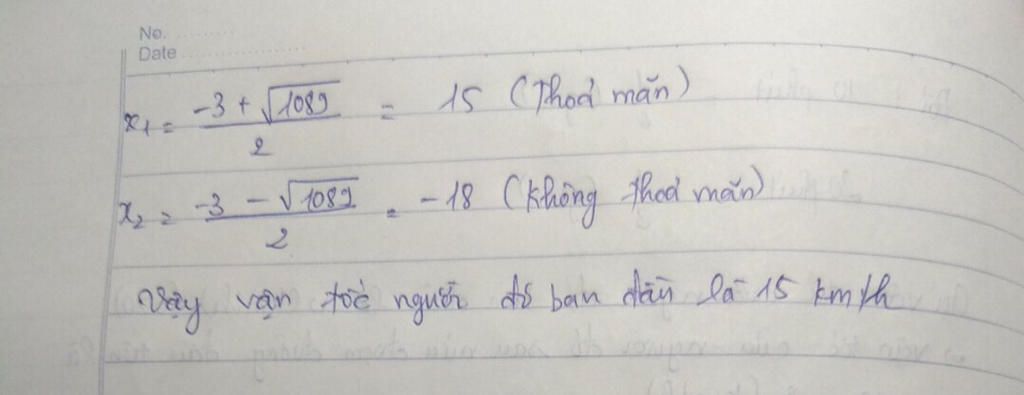 No. ..........
Date ....................
x₁ = (-3 + √1089)/2 = 15 (Thoả mãn)
x₂ = (-3 - √1089)/2 = -18 (Không thoả mãn)
Vậy vận tốc người đó ban đầu là 15 km/h